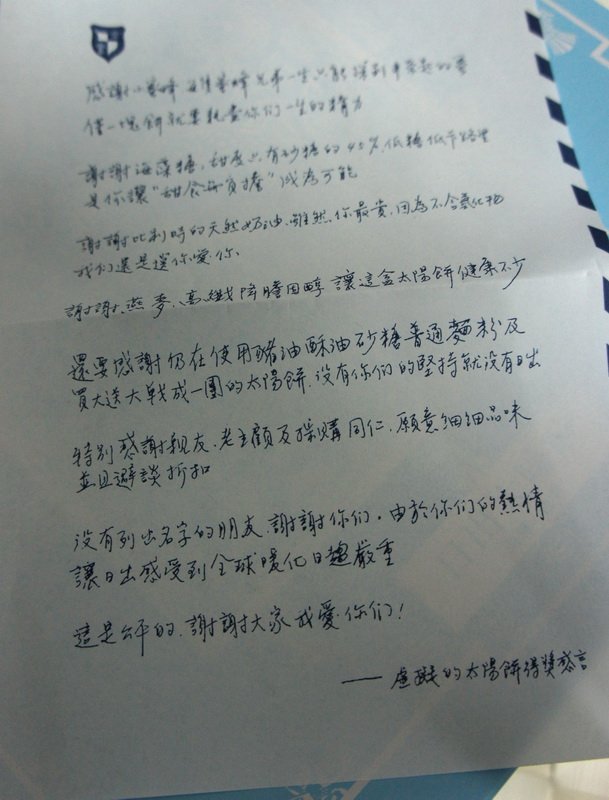 感謝
僅一塊餅就要耗盡你們一生的精力
謝謝海藻糖，甜度只有砂糖的40%，低糖低卡路里
是你讓“甜食無負擔”成為可能
謝謝比利時的天然奶油，雖然你最貴，因為不含氫化物
我們還是選你、愛你、
謝謝燕麥，高纖降膽固醇 讓這盒太陽餅健康不少
還要感謝仍在使用豬油酥油砂糖普通麵粉及
買大送大戰成一團的太陽餅，沒有你们的堅持就沒有日出
特別感謝親友、老主顧及採購同仁，願意細細品味
並且避談折扣
沒有列出名字的朋友，謝謝你们，由於你们的熱情
讓日出感受到全球暖化日趨嚴重
這是公平的，謝謝大家 我愛你们！
—— 虛擬的太陽餅得獎感言